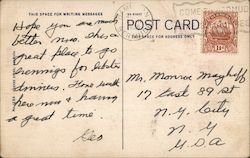 THIS SPACE FOR WRITING MESSAGES
POST CARD
THIS SPACE FOR ADDRESS ONLY
COME TO
Hope you are much
better now. This a
great place to go
evenings for lobster
dinners. Here with
here now & having
a great time.
Mr. Monroe
17 East 89 St
N.Y. City
N.Y
U.S.A